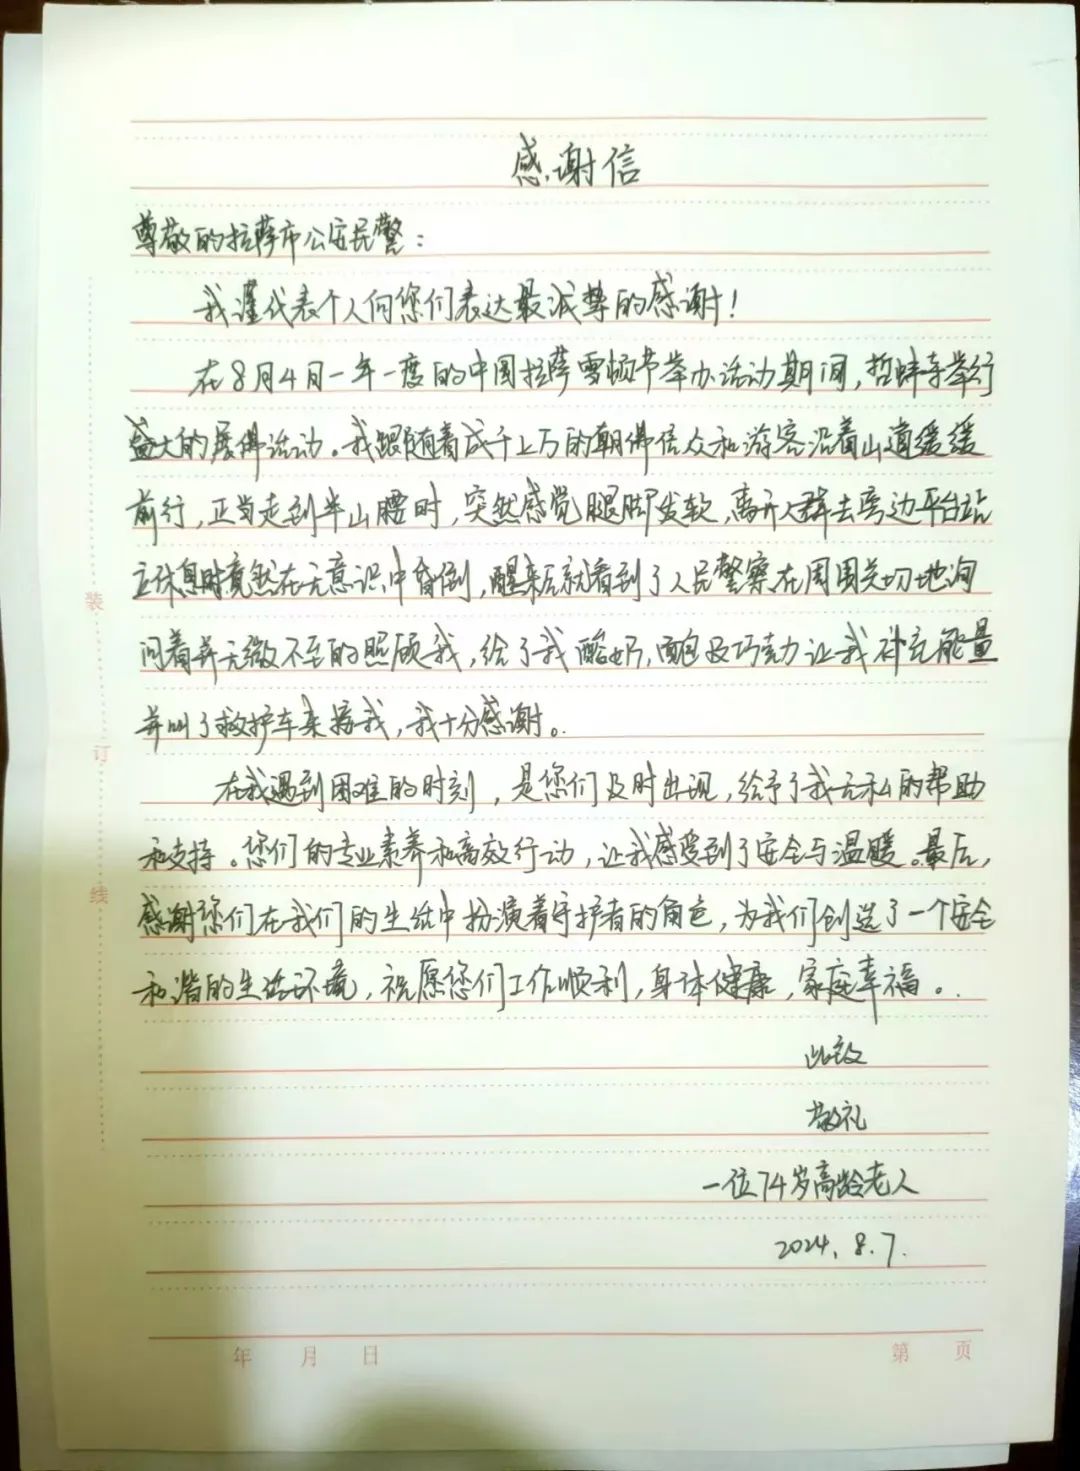 感谢信
尊敬的拉萨市公安民警：
我谨代表个人向您们表达最诚挚的感谢！
在8月4日一年一度的中国拉萨雪顿节举办活动期间，哲蚌寺举行
盛大的展佛活动。我跟随着成千上万的朝佛信众和游客沿着山道缓缓
前行，正当走到半山腰时，突然感觉腿脚发软，离开人群去旁边平台站
立休息时竟然在无意识中昏倒，醒来后就看到了人民警察在周围关切地询
问着并无微不至的照顾我，给了我酸奶，面包及巧克力让我补充能量
并叫了救护车来接我，我十分感谢。
在我遇到困难的时刻，是您们及时出现，给予了我无私的帮助
和支持。您们的专业素养和高效行动，让我感受到了安全与温暖。最后，
感谢您们在我们的生活中扮演着守护者的角色，为我们创造了一个安全
和谐的生活环境，祝愿您们工作顺利，身体健康，家庭幸福。
此致
敬礼
一位74岁高龄老人
2024.8.7.
装
订
线
年 月 日
第 页